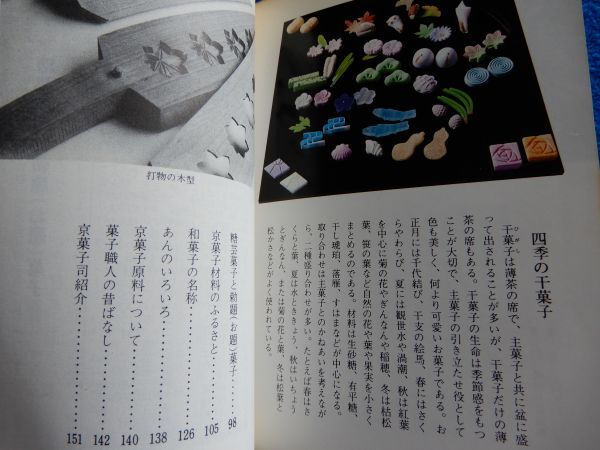 四季の干菓子
ひがし
干菓子は薄茶の席で、主菓子と共に盆に盛
って出されることが多いが、干菓子だけの薄
茶の席もある。干菓子の生命は季節感をもつ
ことが大切で、主菓子の引き立たせ役として
色も美しく、何より可愛いお菓子である。お
正月には千代結び、干支の絵馬、春にはさく
らやわらび、夏には観世水や渦潮、秋は紅葉
を中心に菊の花やぎんなんや稲穂、冬は枯松
葉、笹の葉など自然の花や葉や果実を小さく
まとめるのである。材料は生砂糖、有平糖、
干し琥珀、落雁、すはまなどが中心になる。
取り合わせは主菓子とのかねあいを考えなが
ら、二種盛り合わせが多い。たとえば春はさ
くらと蝶、夏は水とききょう、秋はいちょう
とぎんなん、または菊の花と葉、冬は松葉と
松かさなどがよく使われている。
打物の木型
糖芸菓子と勅題(お題)菓子 98
京菓子材料のふるさと 105
和菓子の名称 126
あんのいろいろ 138
京菓子原料について 140
菓子職人の昔ばなし 142
京菓子司紹介 151